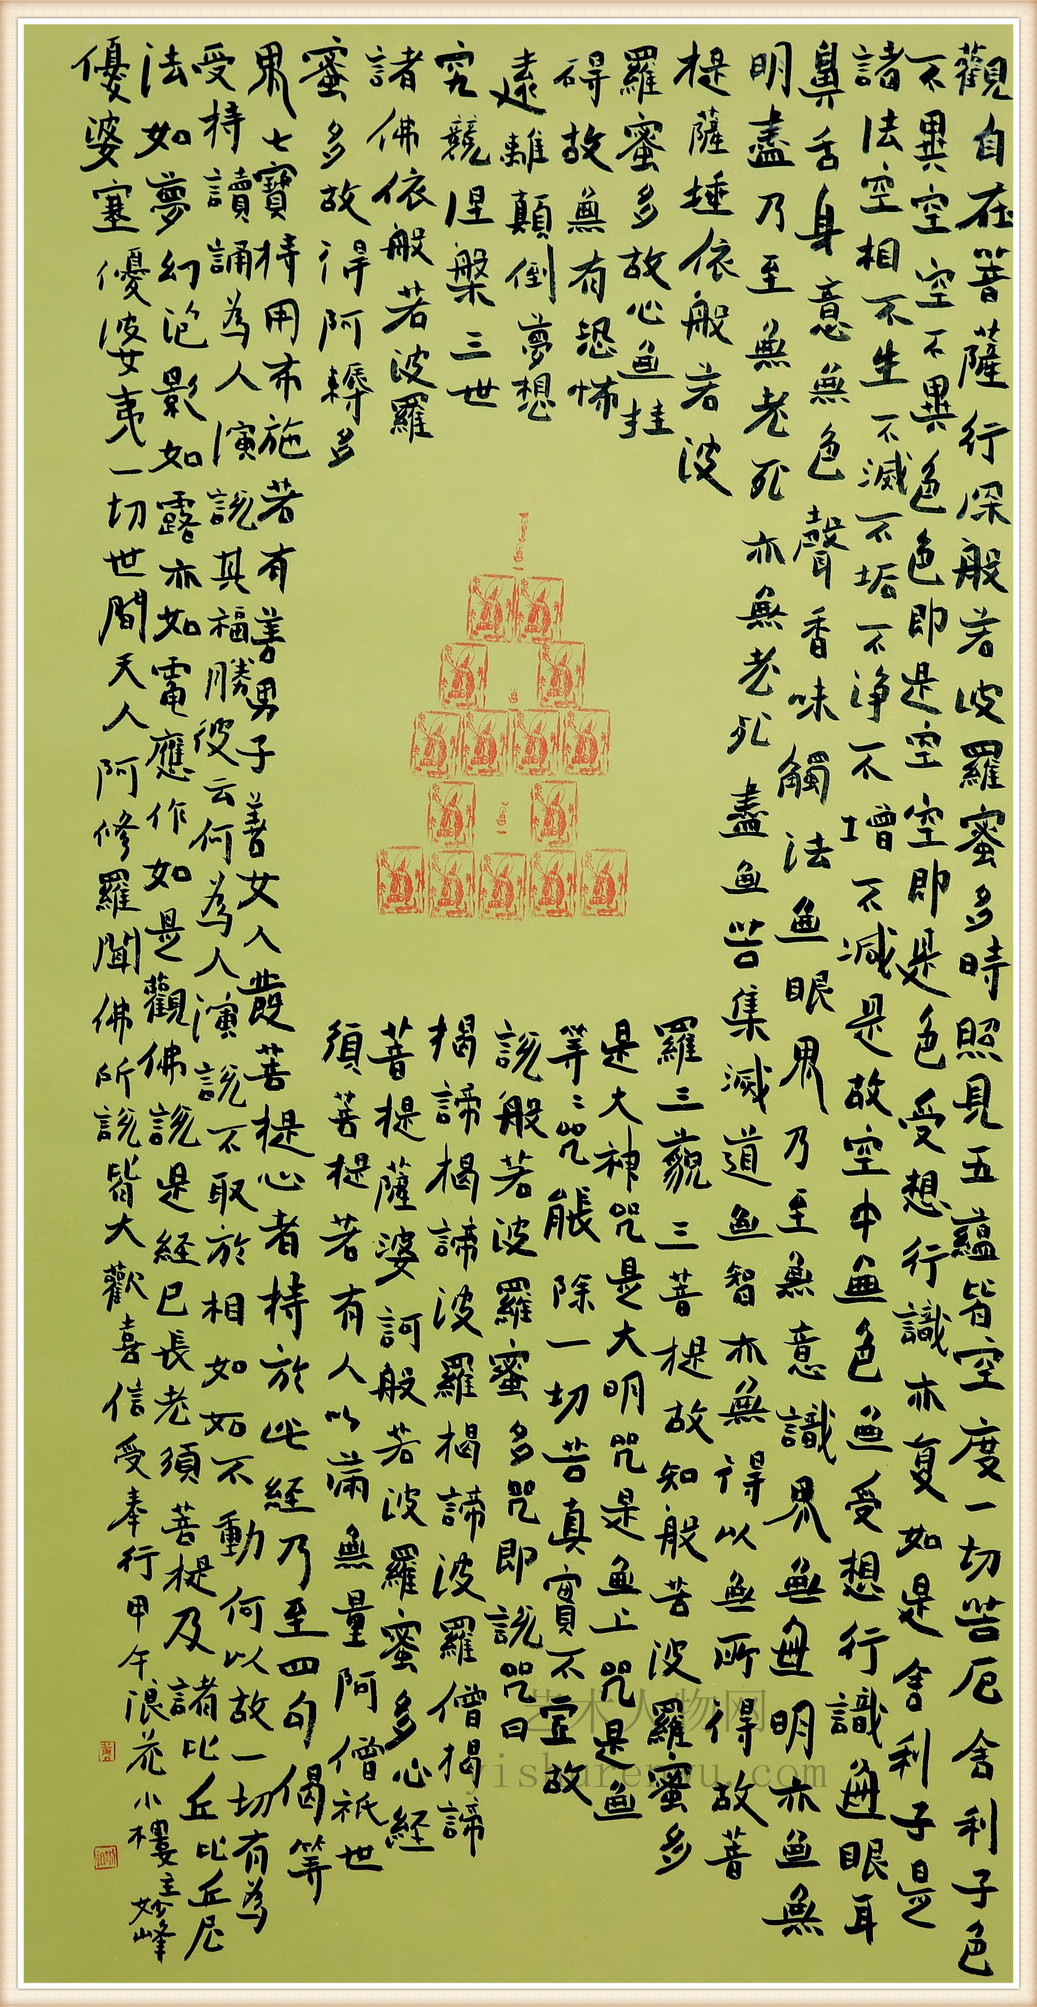 觀自在菩薩行深般若波羅蜜多時照見五蘊皆空度一切苦厄舍利子色
不異空空不異色色即是空空即是色受想行識亦复如是舍利子是
諸法空相不生不滅不垢不净不增不減是故空中無色無受想行識無眼耳
鼻舌身意無色聲香味觸法無眼界乃至無意識界無無明亦無無
明盡乃至無老死亦無老死盡無苦集滅道無智亦無得以無所得故菩
提薩埵依般若波
羅蜜多故心無挂
碍故無有恐怖
遠離顛倒夢想
究競涅槃三世
諸佛依般若波羅
蜜多故得阿耨多
羅三藐三菩提故知般若波羅蜜多
是大神咒是大明咒是無上咒是無
等〻咒能除一切苦真實不虛故
說般若波羅蜜多咒即說咒曰
揭諦揭諦波羅揭諦波羅僧揭諦
菩提薩婆訶般若波羅蜜多心経
須菩提若有人以滿無量阿僧祇世
界七寶持用布施若有善男子善女人發菩提心者持於此経乃至四句偈等
受持讀誦為人演說其福勝彼云何為人演說不取於相如如不動何以故一切有為
法如夢幻泡影如露亦如電應作如是觀佛說是経已長老須菩提及諸比丘比丘尼
優婆塞優婆夷一切世間天人阿修羅聞佛所說皆大歡喜信受奉行甲午浪花小樓主妙峰
艺术人物网
yishurenwu.com